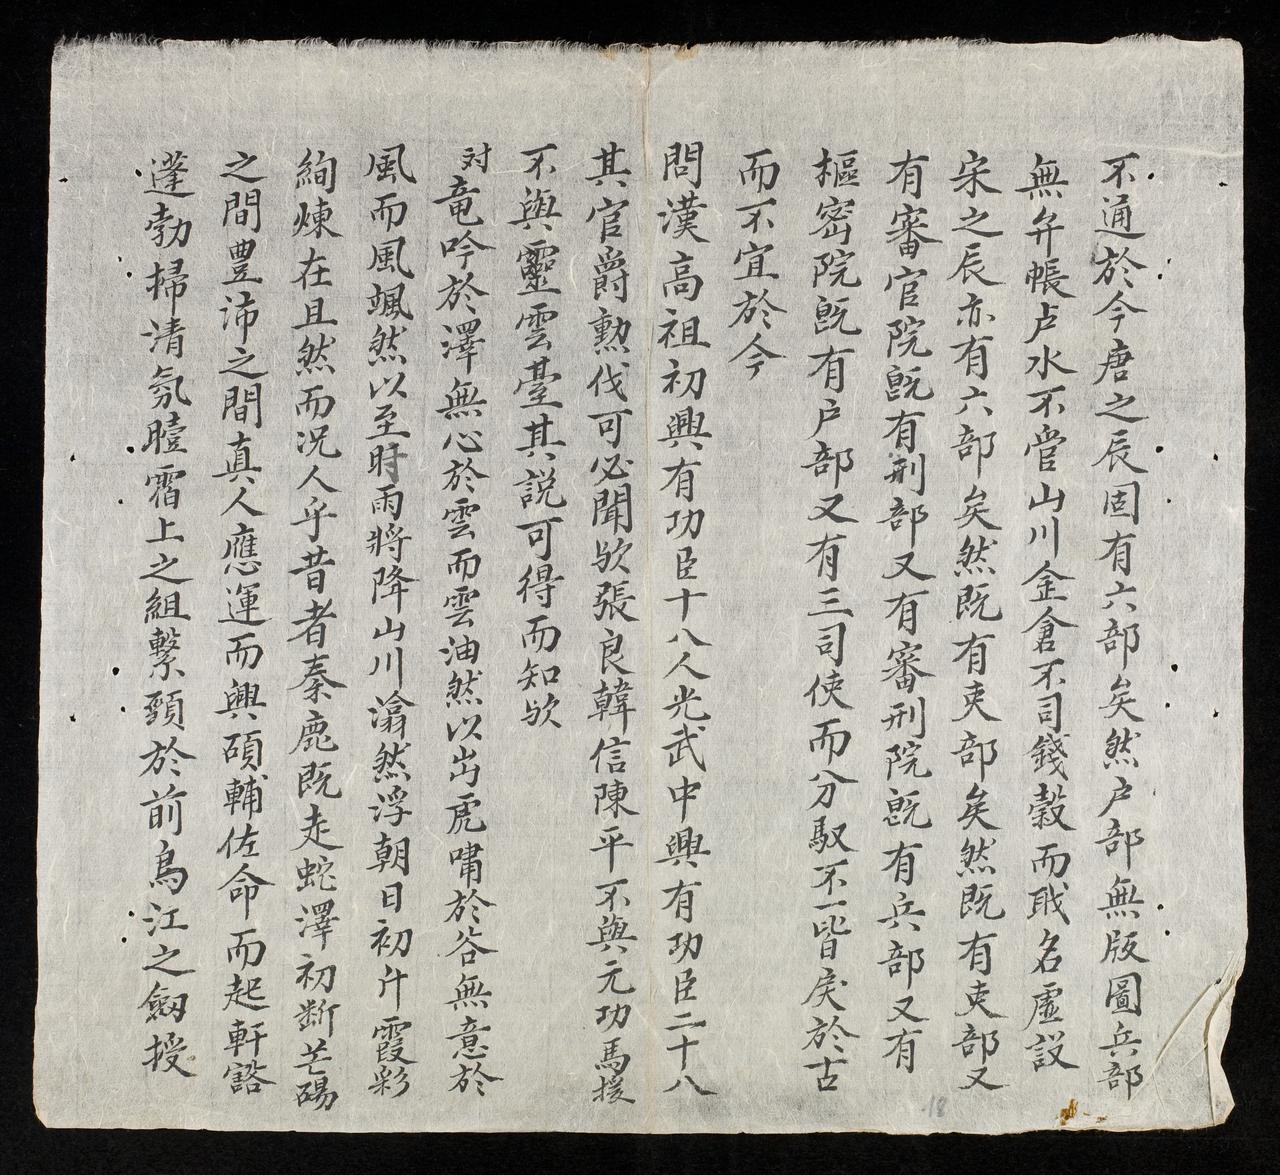 不通於今唐之辰固有六部矣然户部無版圖兵部
無弁帳卢水不管山川金倉不司錢穀而戢名虛設
宋之辰亦有六部矣然既有吏部矣然既有吏部又
有審官院既有刑部又有審刑院既有兵部又有
樞密院既有户部又有三司使而分馭不一皆戾於古
而不宜於今
問漢高祖初興有功臣十八人光武中興有功臣二十八
其官爵勲伐可必聞欤張良韓信陳平不與元功馬援
不與靈雲臺其説可得而知欤
対竜吟於澤無心於雲而雲油然以出虎嘯於谷無意於
風而風颯然以至時雨將降山川滃然浮朝日初升霞彩
絢煉在且然而况人乎昔者秦鹿既走蛇澤初断芒碭
之間豊沛之間真人應運而興碩輔佐命而起軒豁
蓬勃掃清氛曀霤上之組繋頸於前烏江之劔授
18